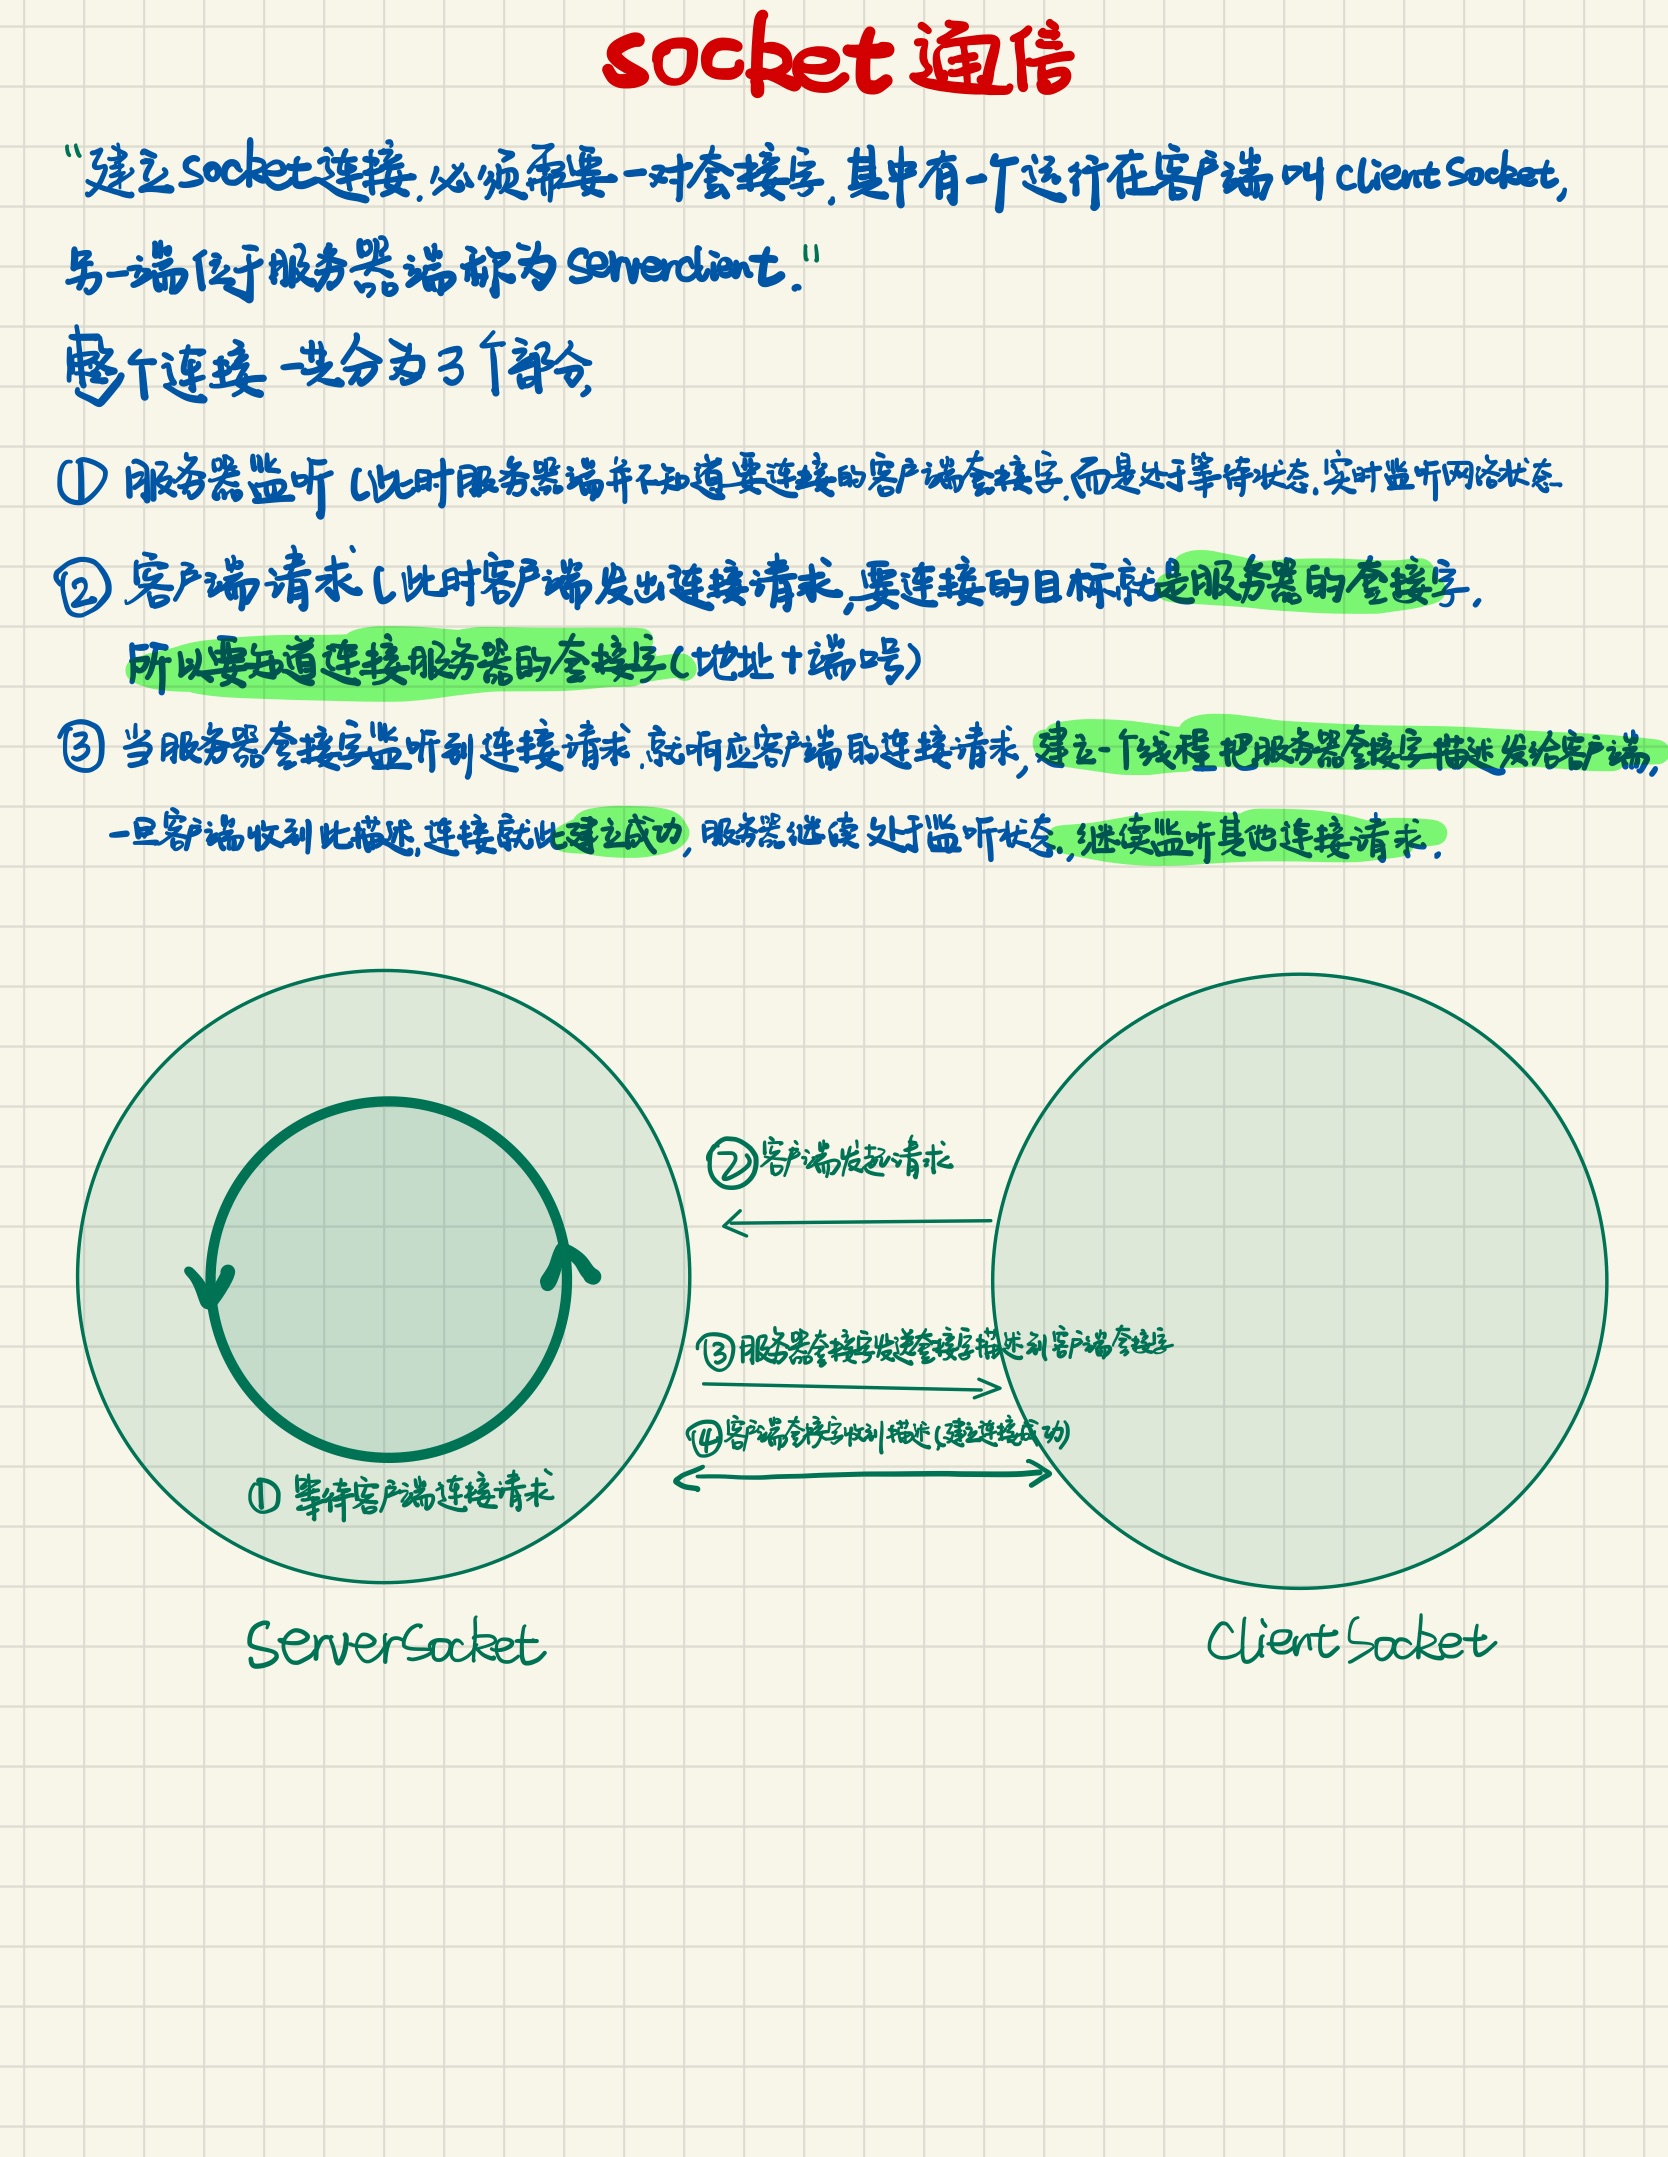 socket通信
"建立socket连接,必须需要一对套接字,其中有一个运行在客户端叫clientSocket,
另一端位于服务器端称为serverclient."
整个连接一共分为3个部分
① 服务器监听(此时服务器端并不知道要连接的客户端套接字,而是处于等待状态,实时监听网络状态
② 客户端请求(此时客户端发出连接请求,要连接的目标就是服务器的套接字,
所以要知道连接服务器的套接字(地址+端口号)
③ 当服务器套接字监听到连接请求,就响应客户端的连接请求,建立一个线程把服务器套接字描述发给客户端,
一旦客户端收到此描述,连接就此建立成功,服务器继续处于监听状态,继续监听其他连接请求.
②客户端发起请求
③服务器套接字发送套接字描述到客户端套接字
④客户端套接字收到描述(建立连接成功)
① 等待客户端连接请求
ServerSocket
ClientSocket